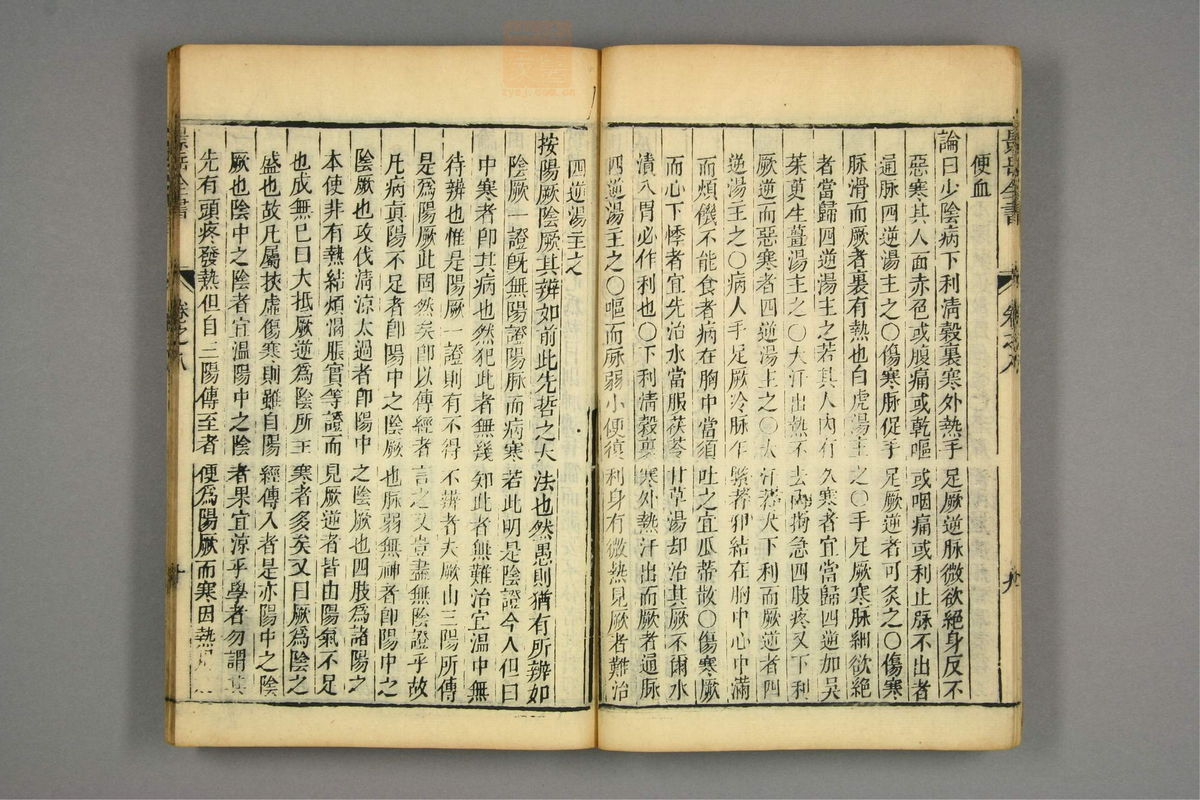 景岳全書 卷之八 九
便血
論曰少陰病下利清穀裏寒外熱手足厥逆脉微欲絕身反不
惡寒其人面赤色或腹痛或乾嘔或咽痛或利止脉不出者
通脉四逆湯主之〇傷寒脉促手足厥逆者可灸之〇傷寒
脉滑而厥者裏有熱也白虎湯主之〇手足厥寒脉細欲絕
者當歸四逆湯主之若其人內有久寒者宜當歸四逆加吳
茱萸生薑湯主之〇大汗出熱不去內拘急四肢疼又下利
厥逆而惡寒者四逆湯主之〇大汗若大下利而厥逆者四
逆湯主之〇病人手足厥冷脉乍緊者邪結在胸中心中滿
而煩饑不能食者病在胸中當須吐之宜瓜蒂散〇傷寒厥
而心下悸者宜先治水當服茯苓甘草湯却治其厥不爾水
漬入胃必作利也〇下利清穀裏寒外熱汗出而厥者通脉
四逆湯主之〇嘔而脉弱小便復利身有微熱見厥者難治
四逆湯主之
按陽厥陰厥其辨如前此先哲之大法也然愚則猶有所辨如
陰厥一證既無陽證陽脉而病寒若此明是陰證今人但曰
中寒者即其病也然犯此者無幾知此者無難治宜溫中無
待辨也惟是陽厥一證則有不得不辨者夫厥由三陽所傳
是為陽厥此固然矣即以傳經者言之又豈盡無陰證乎故
凡病真陽不足者即陽中之陰厥也脉弱無神者即陽中之
陰厥也攻伐清涼太過者即陽中之陰厥也四肢為諸陽之
本使非有熱結煩渴脹實等證而見厥逆者皆由陽氣不足
也成無已曰大抵厥逆為陰所主寒者多矣又曰厥為陰之
盛也故凡屬挾虛傷寒則雖自陽經傳入者是亦陽中之陰
厥也陰中之陰者宜溫陽中之陰者果宜涼乎學者勿謂其
先有頭疼發熱但自三陽傳至者便為陽厥而寒因熱
景岳全書 卷之八 十